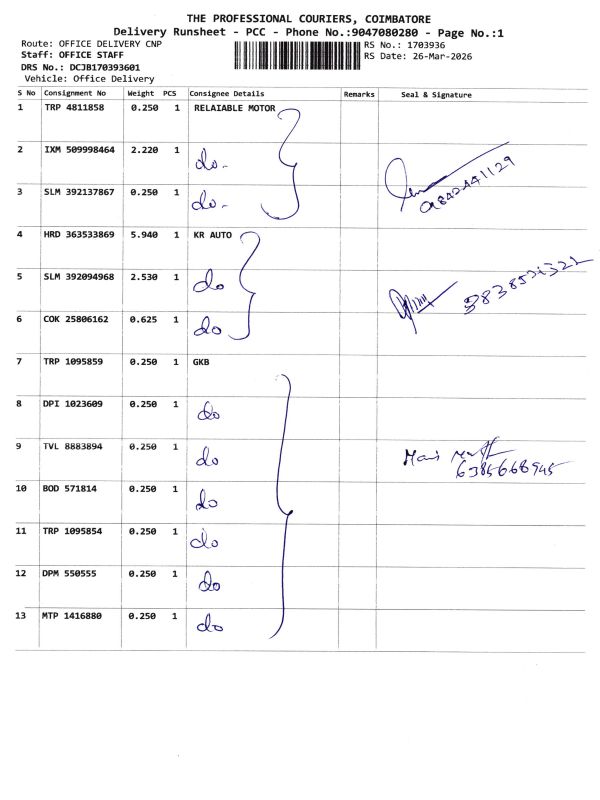 THE PROFESSIONAL COURIERS, COIMBATORE
Delivery Runsheet - PCC - Phone No.:9047080280 - Page No.:1
Route: OFFICE DELIVERY CNP
RS No.: 1703936
Staff: OFFICE STAFF
RS Date: 26-Mar-2026
DRS No.: DCJB170393601
Vehicle: Office Delivery
S No Consignment No Weight PCS Consignee Details Remarks Seal & Signature
1 TRP 4811858 0.250 1 RELAIABLE MOTOR
2 IXM 509998464 2.220 1 do-
3 SLM 392137867 0.250 1 do-
4 HRD 363533869 5.940 1 KR AUTO
5 SLM 392094968 2.530 1 do
6 COK 25806162 0.625 1 do
7 TRP 1095859 0.250 1 GKB
8 DPI 1023609 0.250 1 do
9 TVL 8883894 0.250 1 do
6385668945
10 BOD 571814 0.250 1 do
11 TRP 1095854 0.250 1 do
12 DPM 550555 0.250 1 do
13 MTP 1416880 0.250 1 do